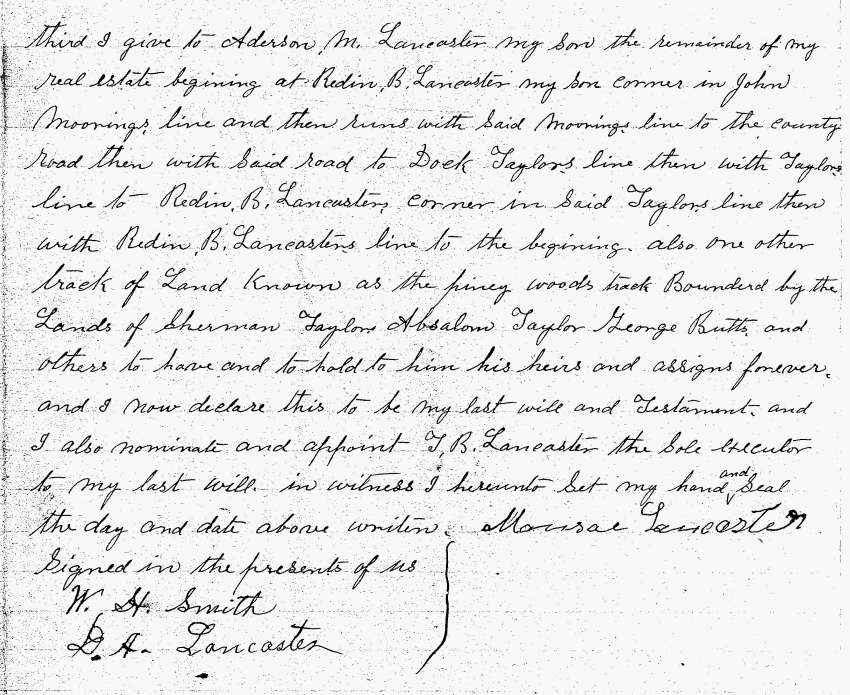 third I give to Aderson, M. Lancaster my son the remainder of my
real estate begining at Redin, B. Lancaster my son corner in John
Moorings, line and then runs with said Moorings line to the county
road then with said road to Dock Taylors line then with Taylors
line to Redin, B. Lancasters corner in said Taylors line then
with Redin, B. Lancasters line to the begining. also one other
track of Land Known as the piney woods track Bounderd by the
Lands of Sherman Taylor Absalom Taylor George Butts, and
others to have and to hold to him his heirs and assigns forever,
and I now declare this to be my last will and Testament. and
I also nominate and appoint T, B. Lancaster the sole executor
to my last will. in witness I hereunto set my hand and seal
the day and date above writen. Monroe Lancaster
Signed in the presents of us
W. H. Smith
D. A. Lancaster